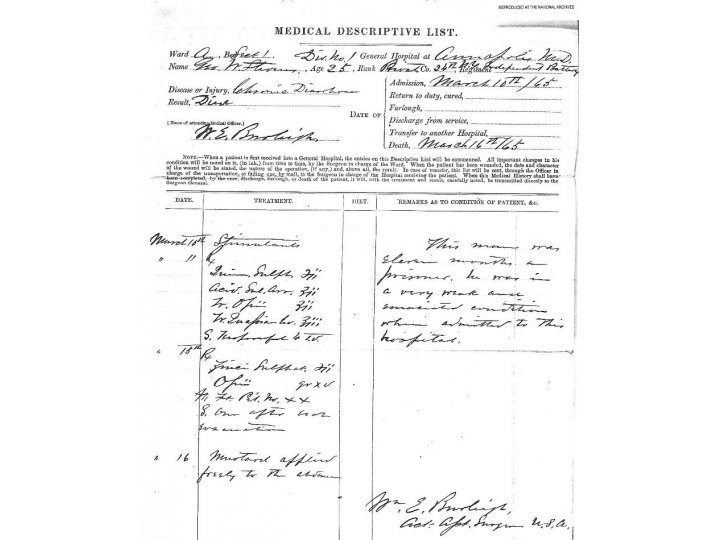 REPRODUCED AT THE NATIONAL ARCHIVES
MEDICAL DESCRIPTIVE LIST.
Ward A, Sect 1. Div. No. 1 General Hospital at Annapolis Md.
Name Geo. W. Age 25, Rank Privat Co. 24th N.Y. Independent Battery Regiment
Disease or Injury, Chronic Diarrhoea
Result, Died
[Name of attending Medical Officer.]
W. E. Burleigh,
DATE OF
Admission, March 10th/65
Return to duty, cured,
Furlough,
Discharge from service,
Transfer to another Hospital,
Death, March 16th/65
NOTE.—When a patient is first received into a General Hospital, the entries on this Descriptive List will be commenced. All important changes in his
condition will be noted on it, (in ink,) from time to time, by the Surgeon in charge of the Ward. When the patient has been wounded, the date and character
of the wound will be stated, the nature of the operation, (if any,) and above all, the result. In case of transfer, this list will be sent, through the Officer in
charge of the transportation, or failing one, by mail, to the Surgeon in charge of the Hospital receiving the patient. When this Medical History shall have
been completed, by the cure, discharge, furlough, or death of the patient, it will, with the treatment and result, carefully noted, be transmitted directly to the
Surgeon General.
DATE. TREATMENT. DIET. REMARKS AS TO CONDITION OF PATIENT, &c.
March 10th Stimulants
" 11 ℞
Quin Sulph. ʒii
Acid. Sul. Aro. ʒii
Tr. Opii ʒii
S. Teaspoonful
" 15th ℞
Zinci Sulphat. ʒii
Opii gr xv
Ft. Pil. No. xx
S. One after each
evacuation
" 16 Mustard applied
freely to the abdomen
This man was
eleven months a
prisoner, he was in
a very weak and
emaciated condition
when admitted to this
hospital.
Wm. E. Burleigh,
Act. Asst. Surgeon U.S.A.